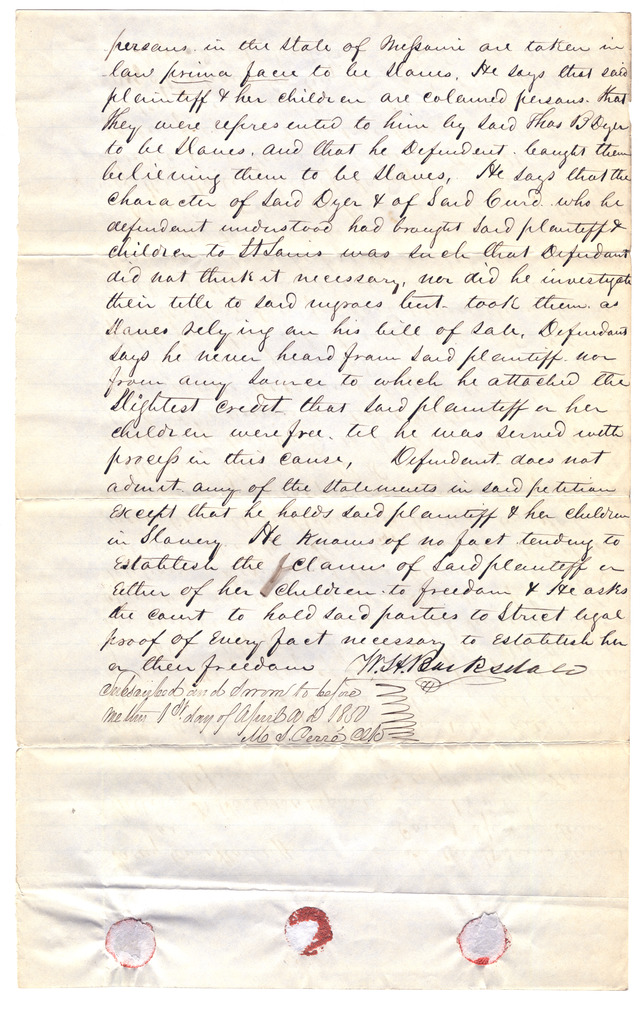 persons in the State of Missouri are taken in
law prima facie to be slaves, He says that said
plaintiff & her children are coloured persons. that
they were represented to him by said Thos B Dyer
to be slaves, and that he Defendent bought them
believing them to be slaves, He says that the
character of said Dyer & of said Curd who he
defendant understood had brought said plaintiff &
children to St Louis was such that Defendant
did not think it necessary, nor did he investigate
their title to said negroes but took them as
slaves relying on his bill of sale, Defendant
says he never heard from said plaintiff nor
from any source to which he attached the
slightest credit that said plaintiff or her
children were free. til he was served with
process in this cause, Defendent does not
admit any of the statements in said petition
except that he holds said plaintiff & her children
in Slavery He knows of no fact tending to
establish the claim of said plaintiff or
either of her children to freedom & He asks
the court to hold said parties to strict legal
proof of every fact necessary to establish her
or their freedom W. H. Barksdale
Subscribed and sworn to before
me this 1st day of April A D 1850
M S. Cerré Clk